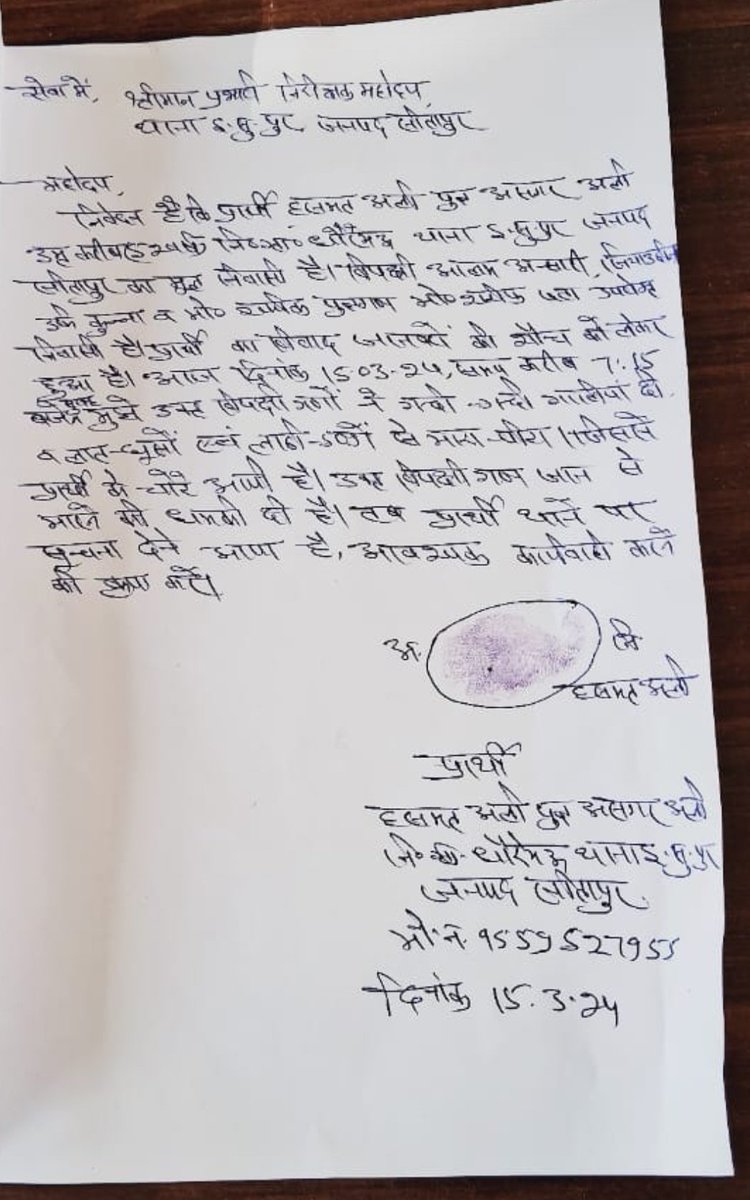 सेवा में, श्रीमान प्रभारी निरीक्षक महोदय,
थाना इ.सु.पुर, जनपद सीतापुर
महोदय,
निवेदन है कि प्रार्थी हसमत अली पुत्र असगर अली
उम्र करीब वर्ष नि०ग्रा० धौरेमऊ थाना इ.सु.पुर जनपद
सीतापुर का मूल निवासी है। विपक्षी आलम अन्सारी,
उर्फ कुन्ना व मो० शफीक पुत्रगण मो०
निवासी है। प्रार्थी का विवाद जानवरों की को लेकर
हुआ है। आज दिनांक 15.03.24, समय करीब 7:15
बजे सुबह मुझे उक्त विपक्षी गणों ने गन्दी-गन्दी गालियां दी
व लात-घूसों एवं लाठी-डण्डों से मारा-पीटा। जिससे
प्रार्थी के चोटें आयी है। उक्त विपक्षी गण जान से
मारने की धमकी दी है। तब प्रार्थी थाने पर
सूचना देने आया है, आवश्यक कार्यवाही करने
की कृपा करें।
अ. नि.
हसमत अली
प्रार्थी
हसमत अली पुत्र असगर अली
नि० ग्रा. धौरेमऊ थाना इ.सु.पुर
जनपद सीतापुर
मो.न. 9559527955
दिनांक 15.3.24